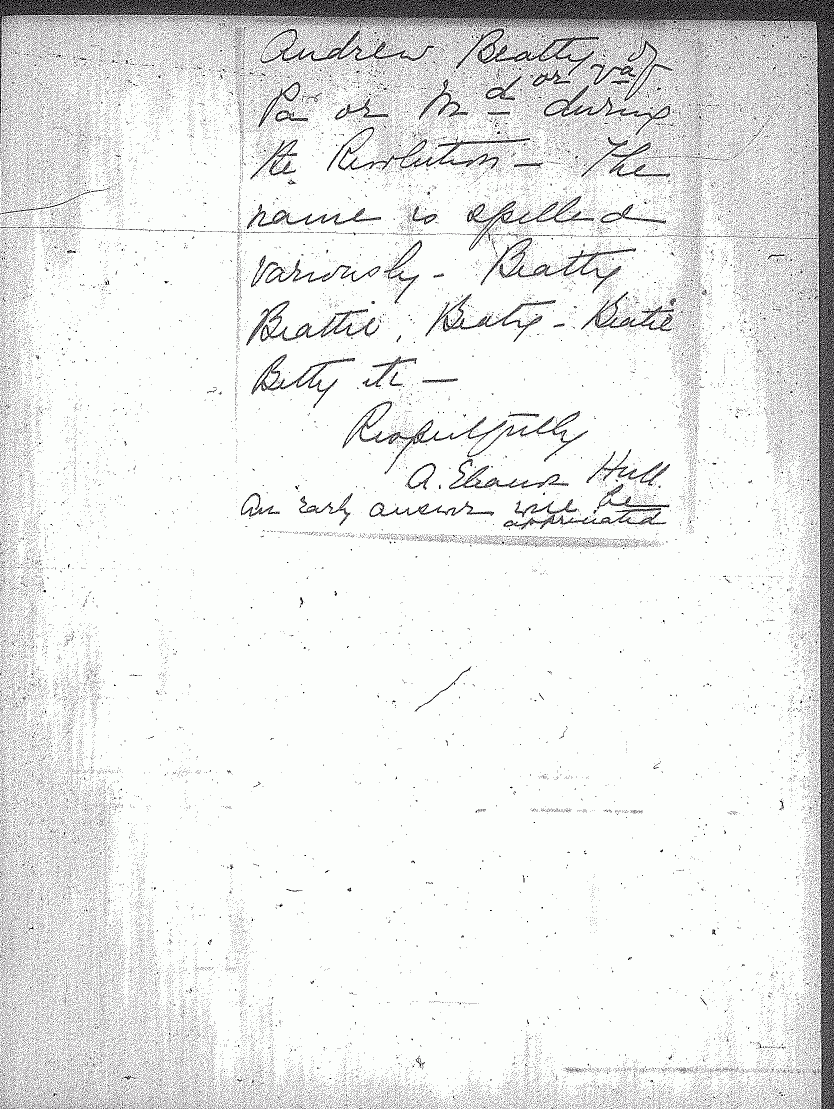 Andrew Beatty of
Pa or Md or Va during
the Revolution — The
name is spelled
variously - Beatty
Beattie, Beaty - Beatie
Betty etc —
Respectfully
A. Eleanor Hull.
An early answer will be
appreciated